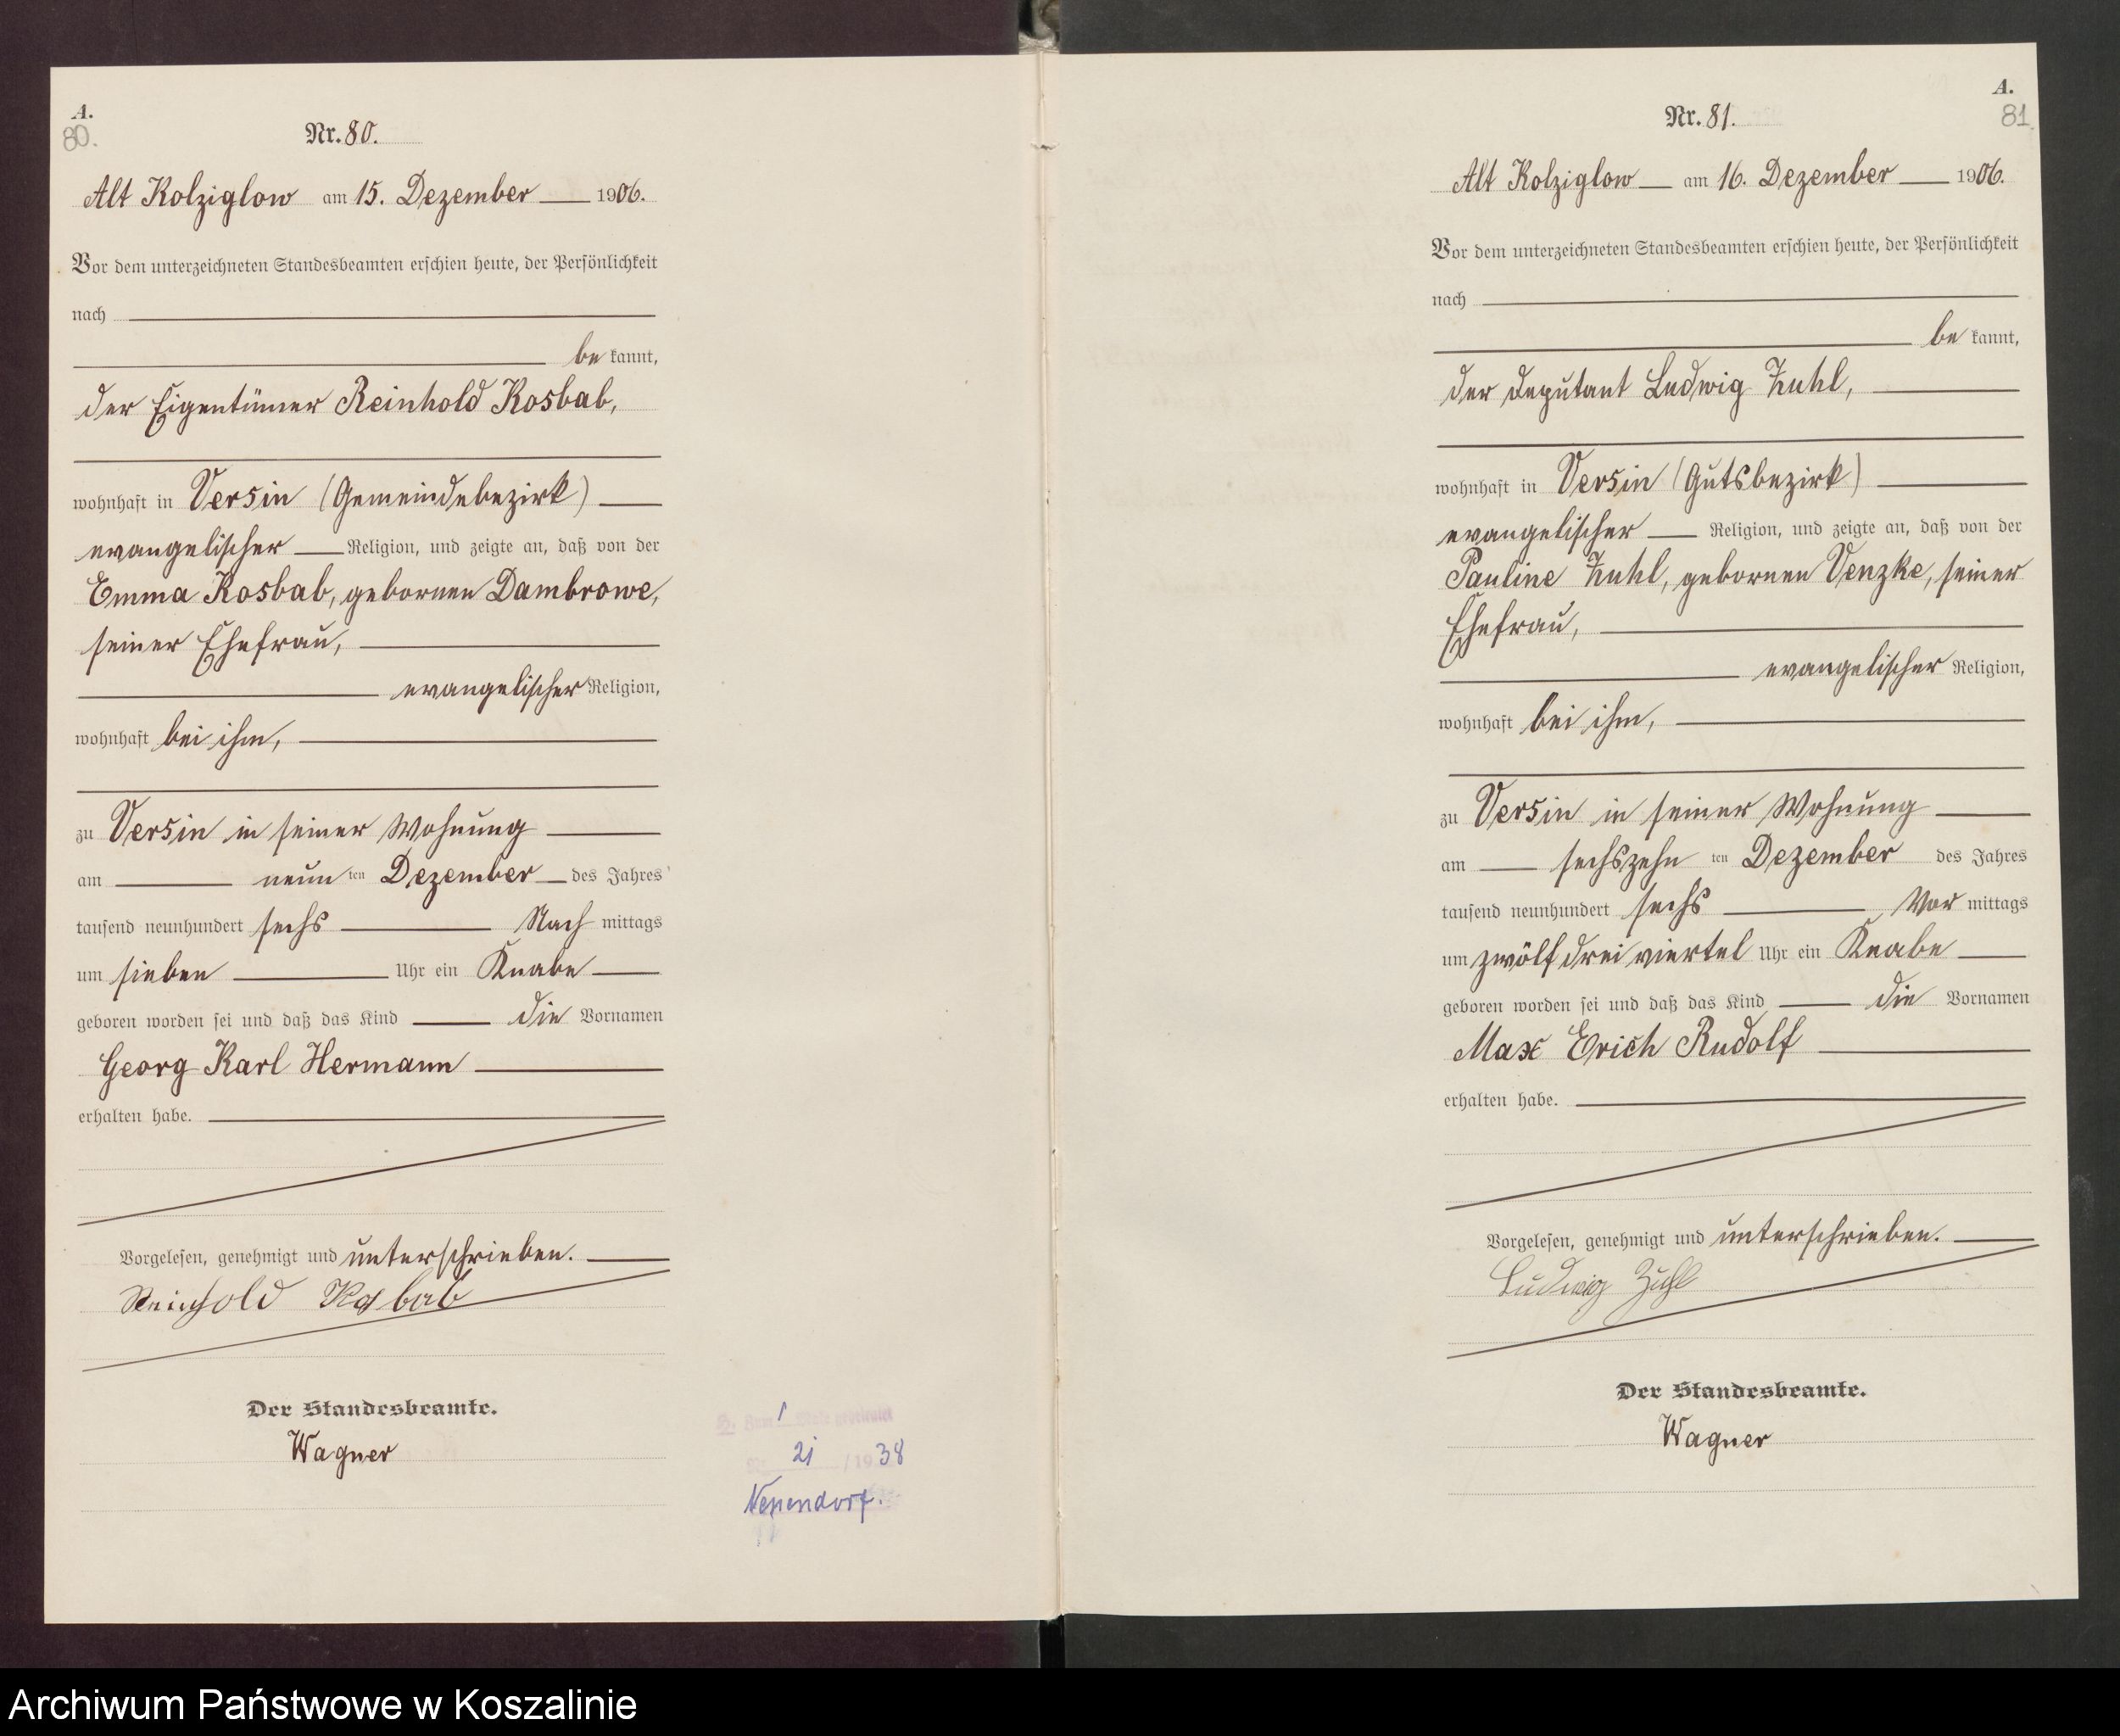 A.
80.
Nr. 80.
Alt Kolziglow am 15. Dezember 1906.
Vor dem unterzeichneten Standesbeamten erschien heute, der Persönlichkeit
nach
be kannt,
der Eigentümer Reinhold Kosbab,
wohnhaft in Versin (Gemeindebezirk)
evangelischer Religion, und zeigte an, daß von der
Emma Kosbab, gebornen Dambrowe,
seiner Ehefrau,
evangelischer Religion,
wohnhaft bei ihm,
zu Versin in seiner Wohnung
am neun ten Dezember des Jahres
tausend neunhundert sechs Nach mittags
um sieben Uhr ein Knabe
geboren worden sei und daß das Kind die Vornamen
Georg Karl Hermann
erhalten habe.
Vorgelesen, genehmigt und unterschrieben.
Reinhold Kosbab
Der Standesbeamte.
Wagner
1
21 /1938
A.
81
Nr. 81.
Alt Kolziglow am 16. Dezember 1906.
Vor dem unterzeichneten Standesbeamten erschien heute, der Persönlichkeit
nach
be kannt,
der Deputant Ludwig Zuhl,
wohnhaft in Versin (Gutsbezirk)
evangelischer Religion, und zeigte an, daß von der
Pauline Zuhl, gebornen Venzke, seiner
Ehefrau,
evangelischer Religion,
wohnhaft bei ihm,
zu Versin in seiner Wohnung
am sechszehn ten Dezember des Jahres
tausend neunhundert sechs Vor mittags
um zwölf drei viertel Uhr ein Knabe
geboren worden sei und daß das Kind die Vornamen
Max Erich Rudolf
erhalten habe.
Vorgelesen, genehmigt und unterschrieben.
Ludwig Zuhl
Der Standesbeamte.
Wagner
Archiwum Państwowe w Koszalinie